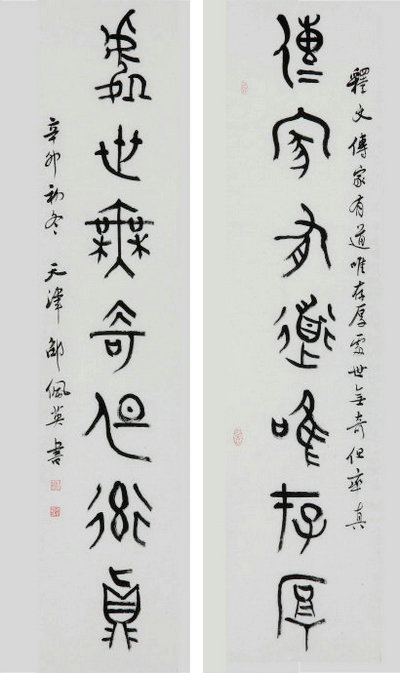 釋文傳家有道唯存厚處世無奇但率真
傳家有道唯存厚
處世無奇但率真
辛卯初冬 天津 邵佩英書